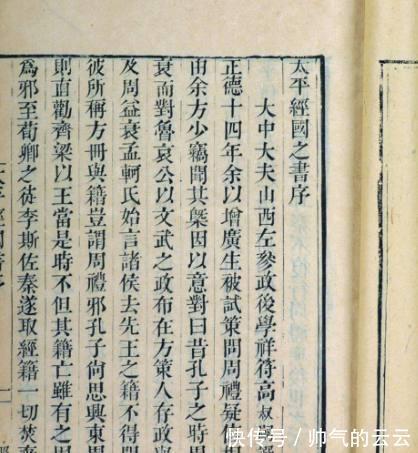 太平經國之書序
大中大夫山西左參政後學祥符高叔
正德十四年余以增廣生被試策問周禮疑
由余方少竊聞其槩因以意對曰昔孔子之時周
衰而對魯哀公以文武之政布在方策人存政
及周益衰孟軻氏始言諸侯去先王之籍不得聞
彼所稱方冊與籍豈謂周禮邪孔子尚思興東周
則直勸齊梁以王當是時不但其籍亡雖有之
爲邪至荀卿之徒李斯佐秦遂取經籍一切焚
快传号／帅气的云云